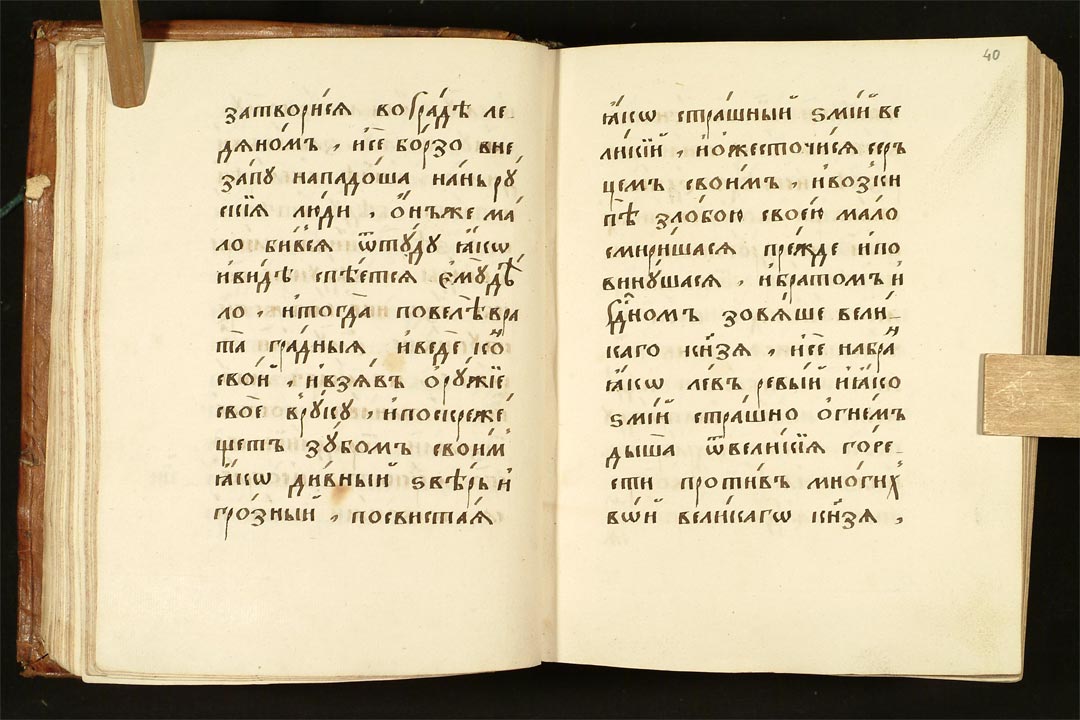 затвори́сѧ во гра́дѣ ле
дѧно́мъ , и҆се̑ бо́рзо вне
за́пу нападо́ша на́нь рꙋ́
скїѧ лю́ди , ѻ҆́нъже ма́
ло би́всѧ ѿтꙋ́дꙋ ꙗ҆́кѡ
и҆ви́дѣ спѣ́етсѧ є҆мꙋ̀ дѣ́
ло , и҆тогда̀ повелѣ̀ вра
та̀ гра́дныѧ и҆ведѐ ко́н
свой , и҆взѧ́въ ѻ҆рꙋ́жїе
своѐ врꙋ́кꙋ , и҆поскреже́
щетъ зꙋ́бомъ свои́м
ꙗ҆́кѡ ди́вный ѕвѣ́рь и҆
гро́зный , посвистаѧ
40
ꙗ҆́ко стра́шный ѕмі́й ве
ли́кїй , и҆ѡжесточи́сѧ сер
цемъ свои́мъ , и҆возки
пѣ̀ зло́бою свое́ю мало
смири́шасѧ пре́жде и҆по
винꙋ́шасѧ , и҆братомъ и҆
гдⷭ҇номъ зовѧ́ше вели́
каго кн҃зѧ , и҆се̑ набран
ꙗ҆́кѡ ле́въ ревы́й и҆ꙗ҆́ко
ѕмі́й стра́шно ѻ҆гне́мъ
дыша̀ ѿвели́кїѧ го́ре
сти про́тивъ мно́гих
во́й вели́кагѡ кн҃зѧ ,